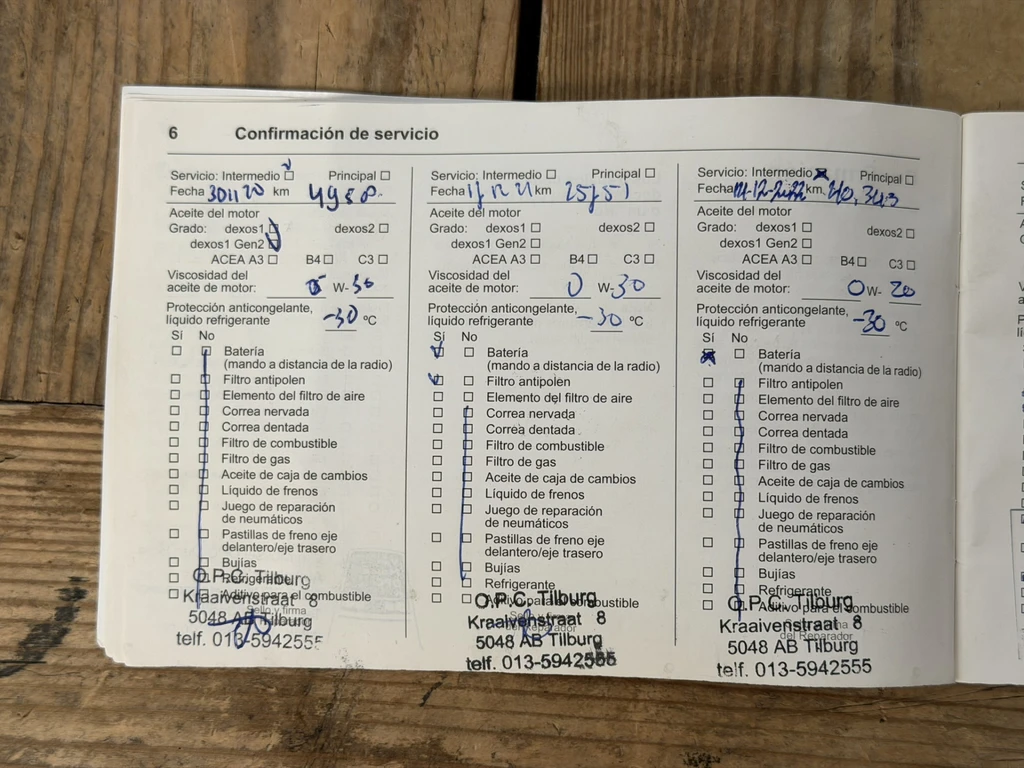 6 Confirmación de servicio
Servicio: Intermedio Principal
Fecha 301120 km
Aceite del motor
Grado: dexos1 dexos2
dexos1 Gen2
ACEA A3 B4 C3
Viscosidad del
aceite de motor: W-30
Protección anticongelante,
líquido refrigerante -30 ºC
Sí No
Batería
(mando a distancia de la radio)
Filtro antipolen
Elemento del filtro de aire
Correa nervada
Correa dentada
Filtro de combustible
Filtro de gas
Aceite de caja de cambios
Líquido de frenos
Juego de reparación
de neumáticos
Pastillas de freno eje
delantero/eje trasero
Bujías
Refrigerante
Aditivo para el combustible
Sello y firma
O.P.C. Tilburg
Kraaivenstraat 8
5048 AB Tilburg
telf. 013-5942555
Servicio: Intermedio Principal
Fecha km
Aceite del motor
Grado: dexos1 dexos2
dexos1 Gen2
ACEA A3 B4 C3
Viscosidad del
aceite de motor: 0 W-30
Protección anticongelante,
líquido refrigerante -30 ºC
Sí No
Batería
(mando a distancia de la radio)
Filtro antipolen
Elemento del filtro de aire
Correa nervada
Correa dentada
Filtro de combustible
Filtro de gas
Aceite de caja de cambios
Líquido de frenos
Juego de reparación
de neumáticos
Pastillas de freno eje
delantero/eje trasero
Bujías
Refrigerante
Aditivo para el combustible
O.P.C. Tilburg
Kraaivenstraat 8
del Reparador
5048 AB Tilburg
telf. 013-5942555
Servicio: Intermedio Principal
Fecha km
Aceite del motor
Grado: dexos1 dexos2
dexos1 Gen2
ACEA A3 B4 C3
Viscosidad del
aceite de motor: 0 W- 20
Protección anticongelante,
líquido refrigerante -30 ºC
Sí No
Batería
(mando a distancia de la radio)
Filtro antipolen
Elemento del filtro de aire
Correa nervada
Correa dentada
Filtro de combustible
Filtro de gas
Aceite de caja de cambios
Líquido de frenos
Juego de reparación
de neumáticos
Pastillas de freno eje
delantero/eje trasero
Bujías
Refrigerante
Aditivo para el combustible
O.P.C. Tilburg
Kraaivenstraat 8
del Reparador
5048 AB Tilburg
telf. 013-5942555